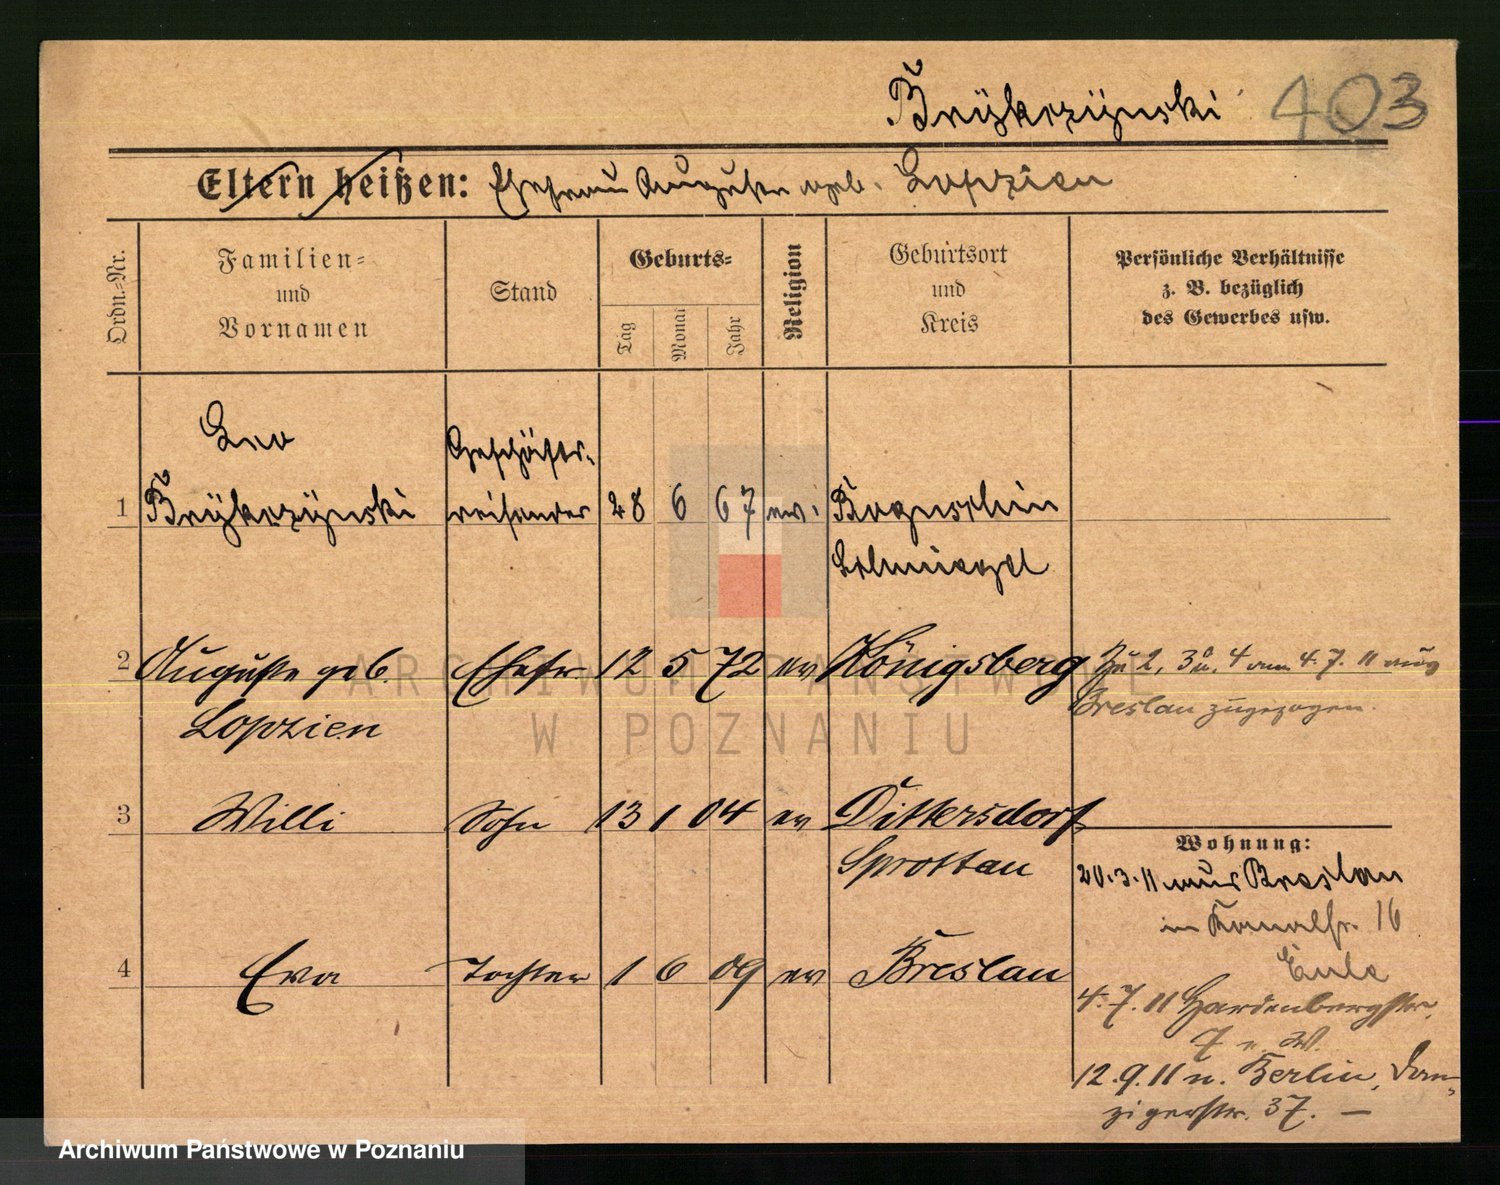 Brzykczynski 403
Eltern heißen: Ehefrau Auguste geb. Lopzien
Ordn.-Nr.
Familien- und Vornamen
Stand
Geburts-
Tag
Monat
Jahr
Religion
Geburtsort und Kreis
Persönliche Verhältnisse
z. B. bezüglich
des Gewerbes usw.
Leo Geschäfts-
1 28 6 67 ev.
reisender
Schmiegel
2 Auguste geb. Ehefr 12 5 72 ev Königsberg Zu 2, 3 u. 4 am 4.7.11 aus
Lopzien Breslau zugezogen.
3 Willi Sohn 13 1 04 ev Dittersdorf
Sprottau
Wohnung:
20.3.11 aus Breslau
in Kanalstr. 16
4 Eva Tochter 1 6 09 ev Breslau
4.7.11 Hardenbergstr.
7 n. W.
12.9.11 n. Berlin, Dan-
zigerstr. 37. —
ARCHIWUM PAŃSTWOWE
W POZNANIU
Archiwum Państwowe w Poznaniu